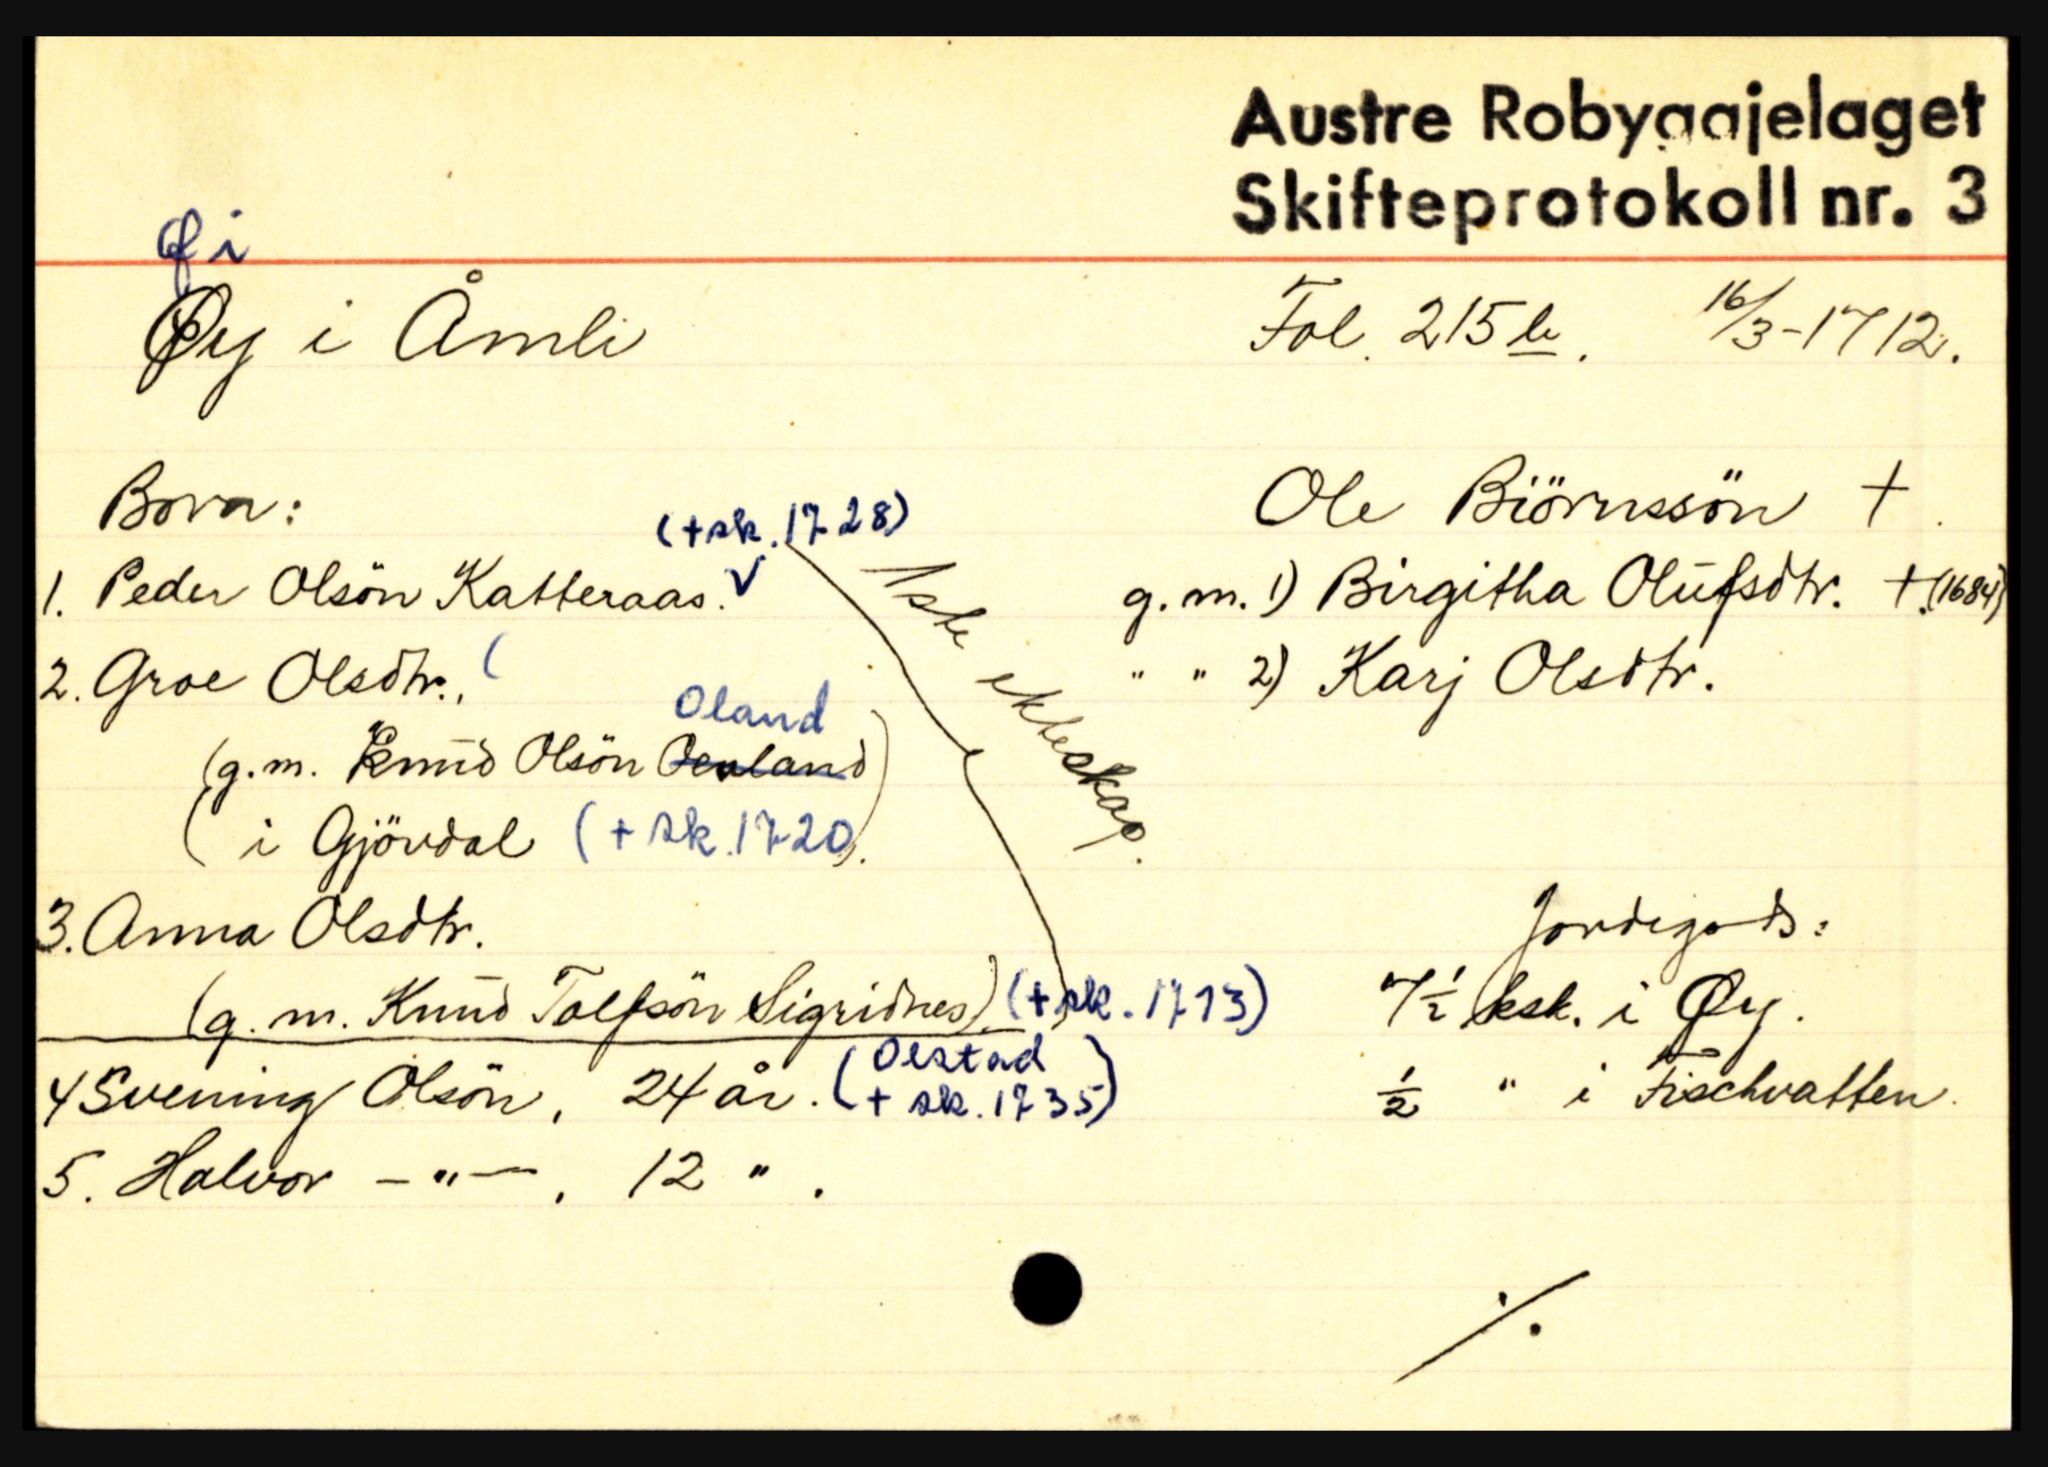 Austre Robyggjelaget
Skifteprotokoll nr. 3
Øi
Øy i Åmli
Fol. 215 b. 16/3-1712.
Born:
Ole Biörnssön +.
(+sk. 1728)
1. Peder Olsön Katteraas. √
1ste ekteskap.
g.m. 1) Birgitha Olüfsdtr. +.(1684)
2. Groe Olsdtr., (
" " 2) Karj Olsdtr.
Oland
(g.m. Knud Olsön Oeuland)
( i Gjövdal (+ sk. 1720).
3. Anna Olsdtr.
Jordegods:
(g.m. Knud Tolfsön Sigridnes) (+sk. 1713)
7½ ksk. i Øy.
4 Svening Olsön, 24 år. (Olstad
+ sk. 1735)
½ " i Fischvatten.
5. Halvor -"-, 12 ".
./.